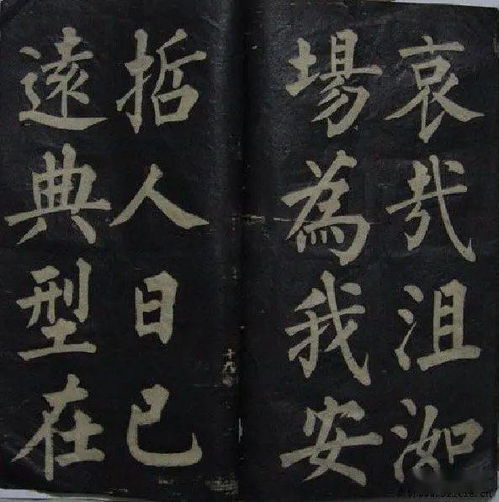 哀哉沮洳
場為我安
十九
哲人日已
遠典型在